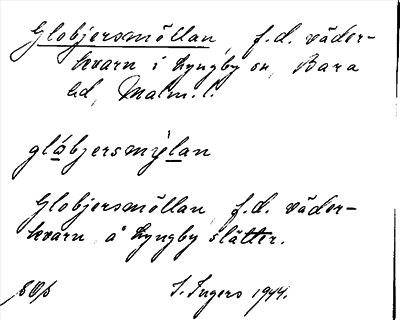 Globjersmöllan, f.d. väder-
kvarn i Lyngby sn, Bara
hd, Malm. l.
glåbjersmylan
Globjersmöllan, f.d. väder-
kvarn å Lyngby slätter.
I. Ingers 1944.